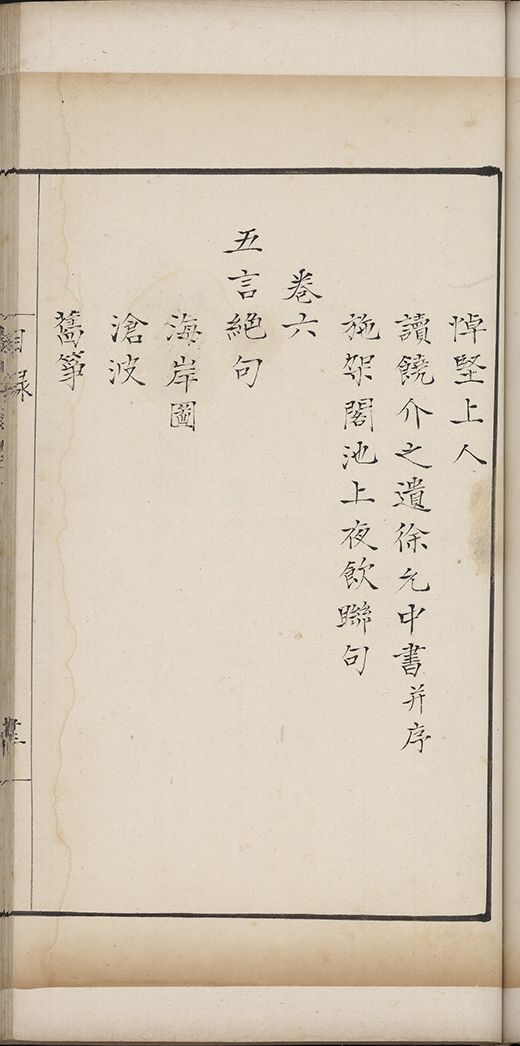 悼堅上人
讀饒介之遺徐允中書并序
施架閣池上夜飲聯句
卷六
五言絕句
海岸圖
滄波
舊箏
目錄